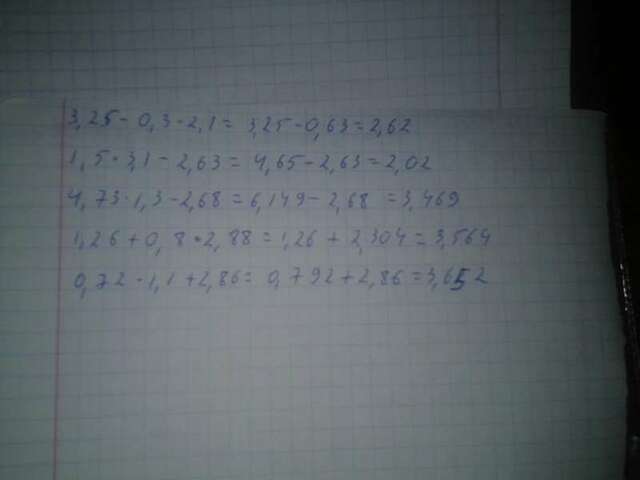 3,25 - 0,3 · 2,1 = 3,25 - 0,63 = 2,62
1,5 · 3,1 - 2,63 = 4,65 - 2,63 = 2,02
4,73 · 1,3 - 2,68 = 6,149 - 2,68 = 3,469
1,26 + 0,8 · 2,88 = 1,26 + 2,304 = 3,564
0,72 · 1,1 + 2,86 = 0,792 + 2,86 = 3,652